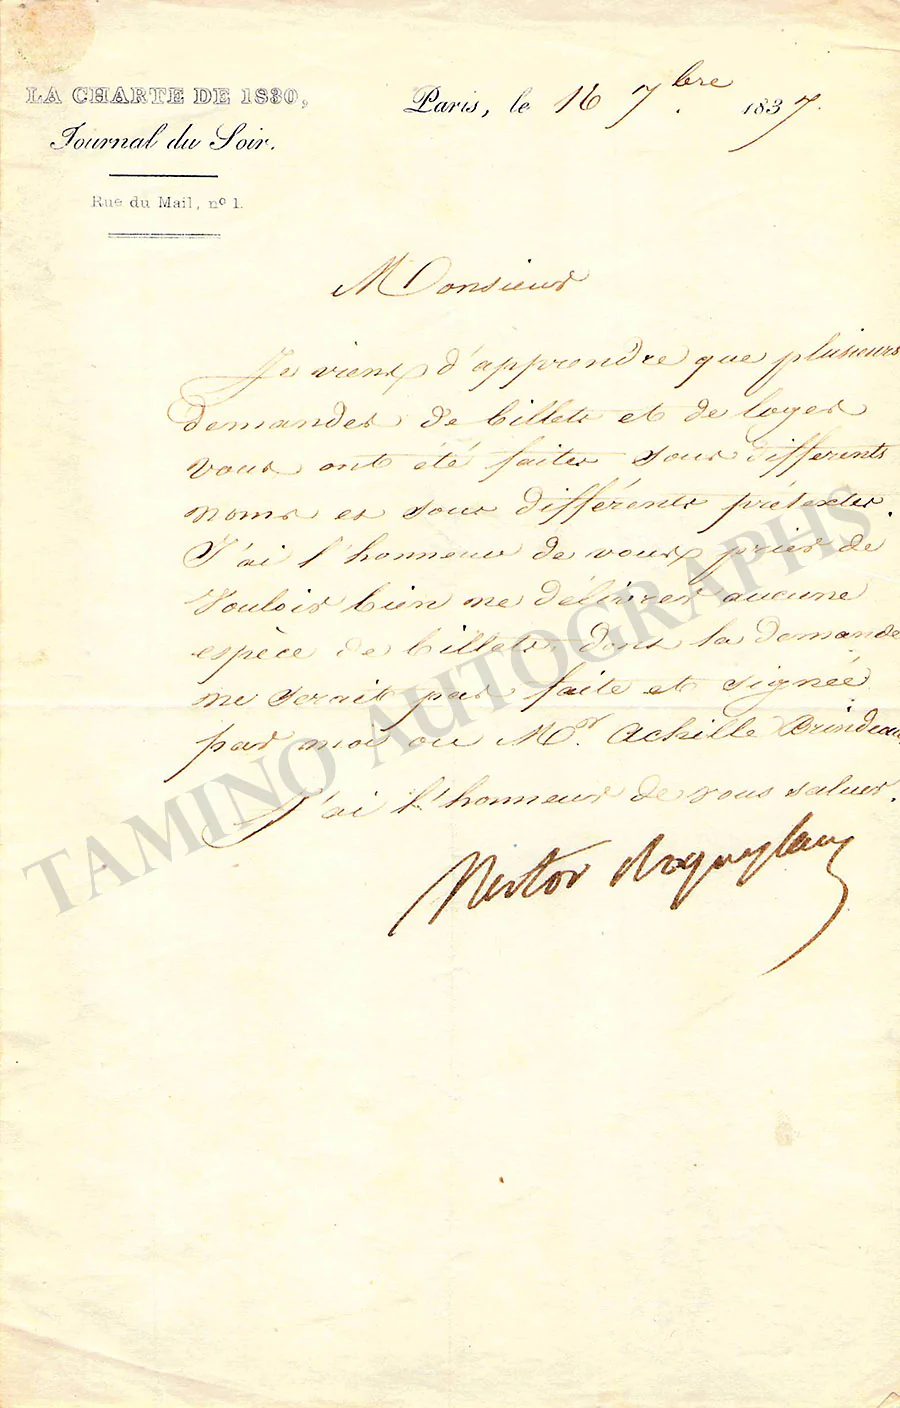 LA CHARTE DE 1830,
Journal du Soir.
Rue du Mail, nº 1.
Paris, le 16 7bre 1837.
Monsieur
Je viens d'apprendre que plusieurs
demandes de billets et de loges
vous ont été faites sous différents
noms et sous différents prétextes.
J'ai l'honneur de vous prier de
vouloir bien ne délivrer aucune
espèce de billets dont la demande
ne serait pas faite et signée
par moi ou Mr. Achille Brindeau,
J'ai l'honneur de vous saluer.
Nestor Roqueplan
TAMINO AUTOGRAPHS